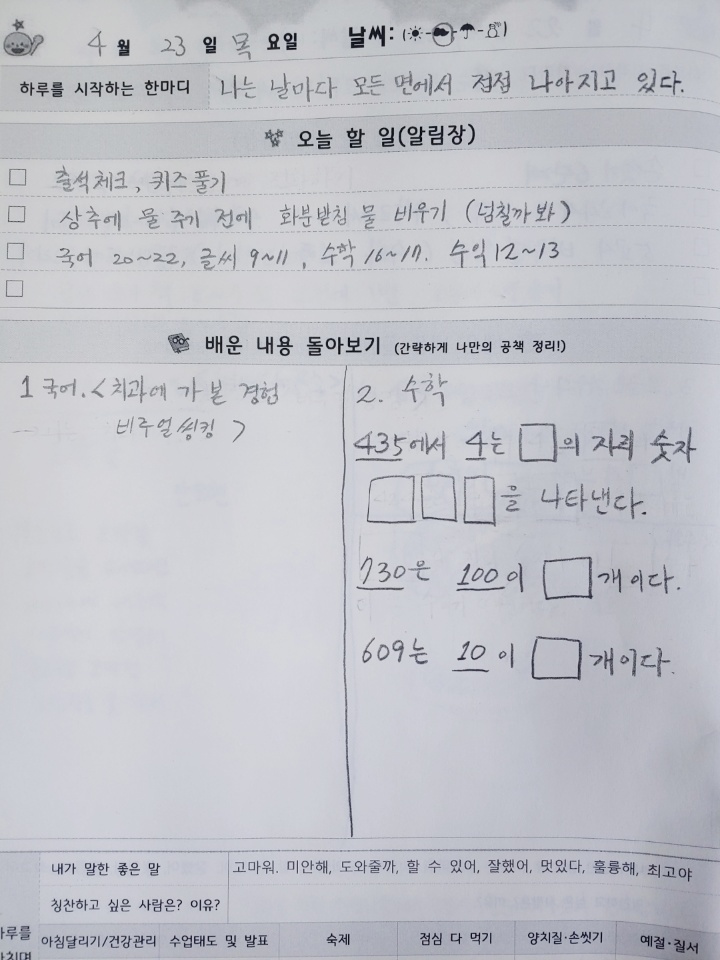 4 월 23 일 목 요일 날씨: ( - - - )
하루를 시작하는 한마디 나는 날마다 모든 면에서 점점 나아지고 있다.
오늘 할 일(알림장)
□ 출석체크, 퀴즈풀기
□ 상추에 물 주기 전에 화분받침 물 비우기 (넘칠까봐)
□ 국어 20~22, 글씨 9~11, 수학 16~17. 수익 12~13
□
배운 내용 돌아보기 (간략하게 나만의 공책 정리!)
1 국어. <치과에 가 본 경험
비주얼씽킹 >
2. 수학
435에서 4는 □의 자리 숫자
□□□을 나타낸다.
730은 100이 □개이다.
609는 10이 □개이다.
내가 말한 좋은 말 고마워. 미안해, 도와줄까, 할 수 있어, 잘했어, 멋있다, 훌륭해, 최고야
칭찬하고 싶은 사람은? 이유?
하루를
아침달리기/건강관리 수업태도 및 발표 숙제 점심 다 먹기 양치질·손씻기 예절·질서